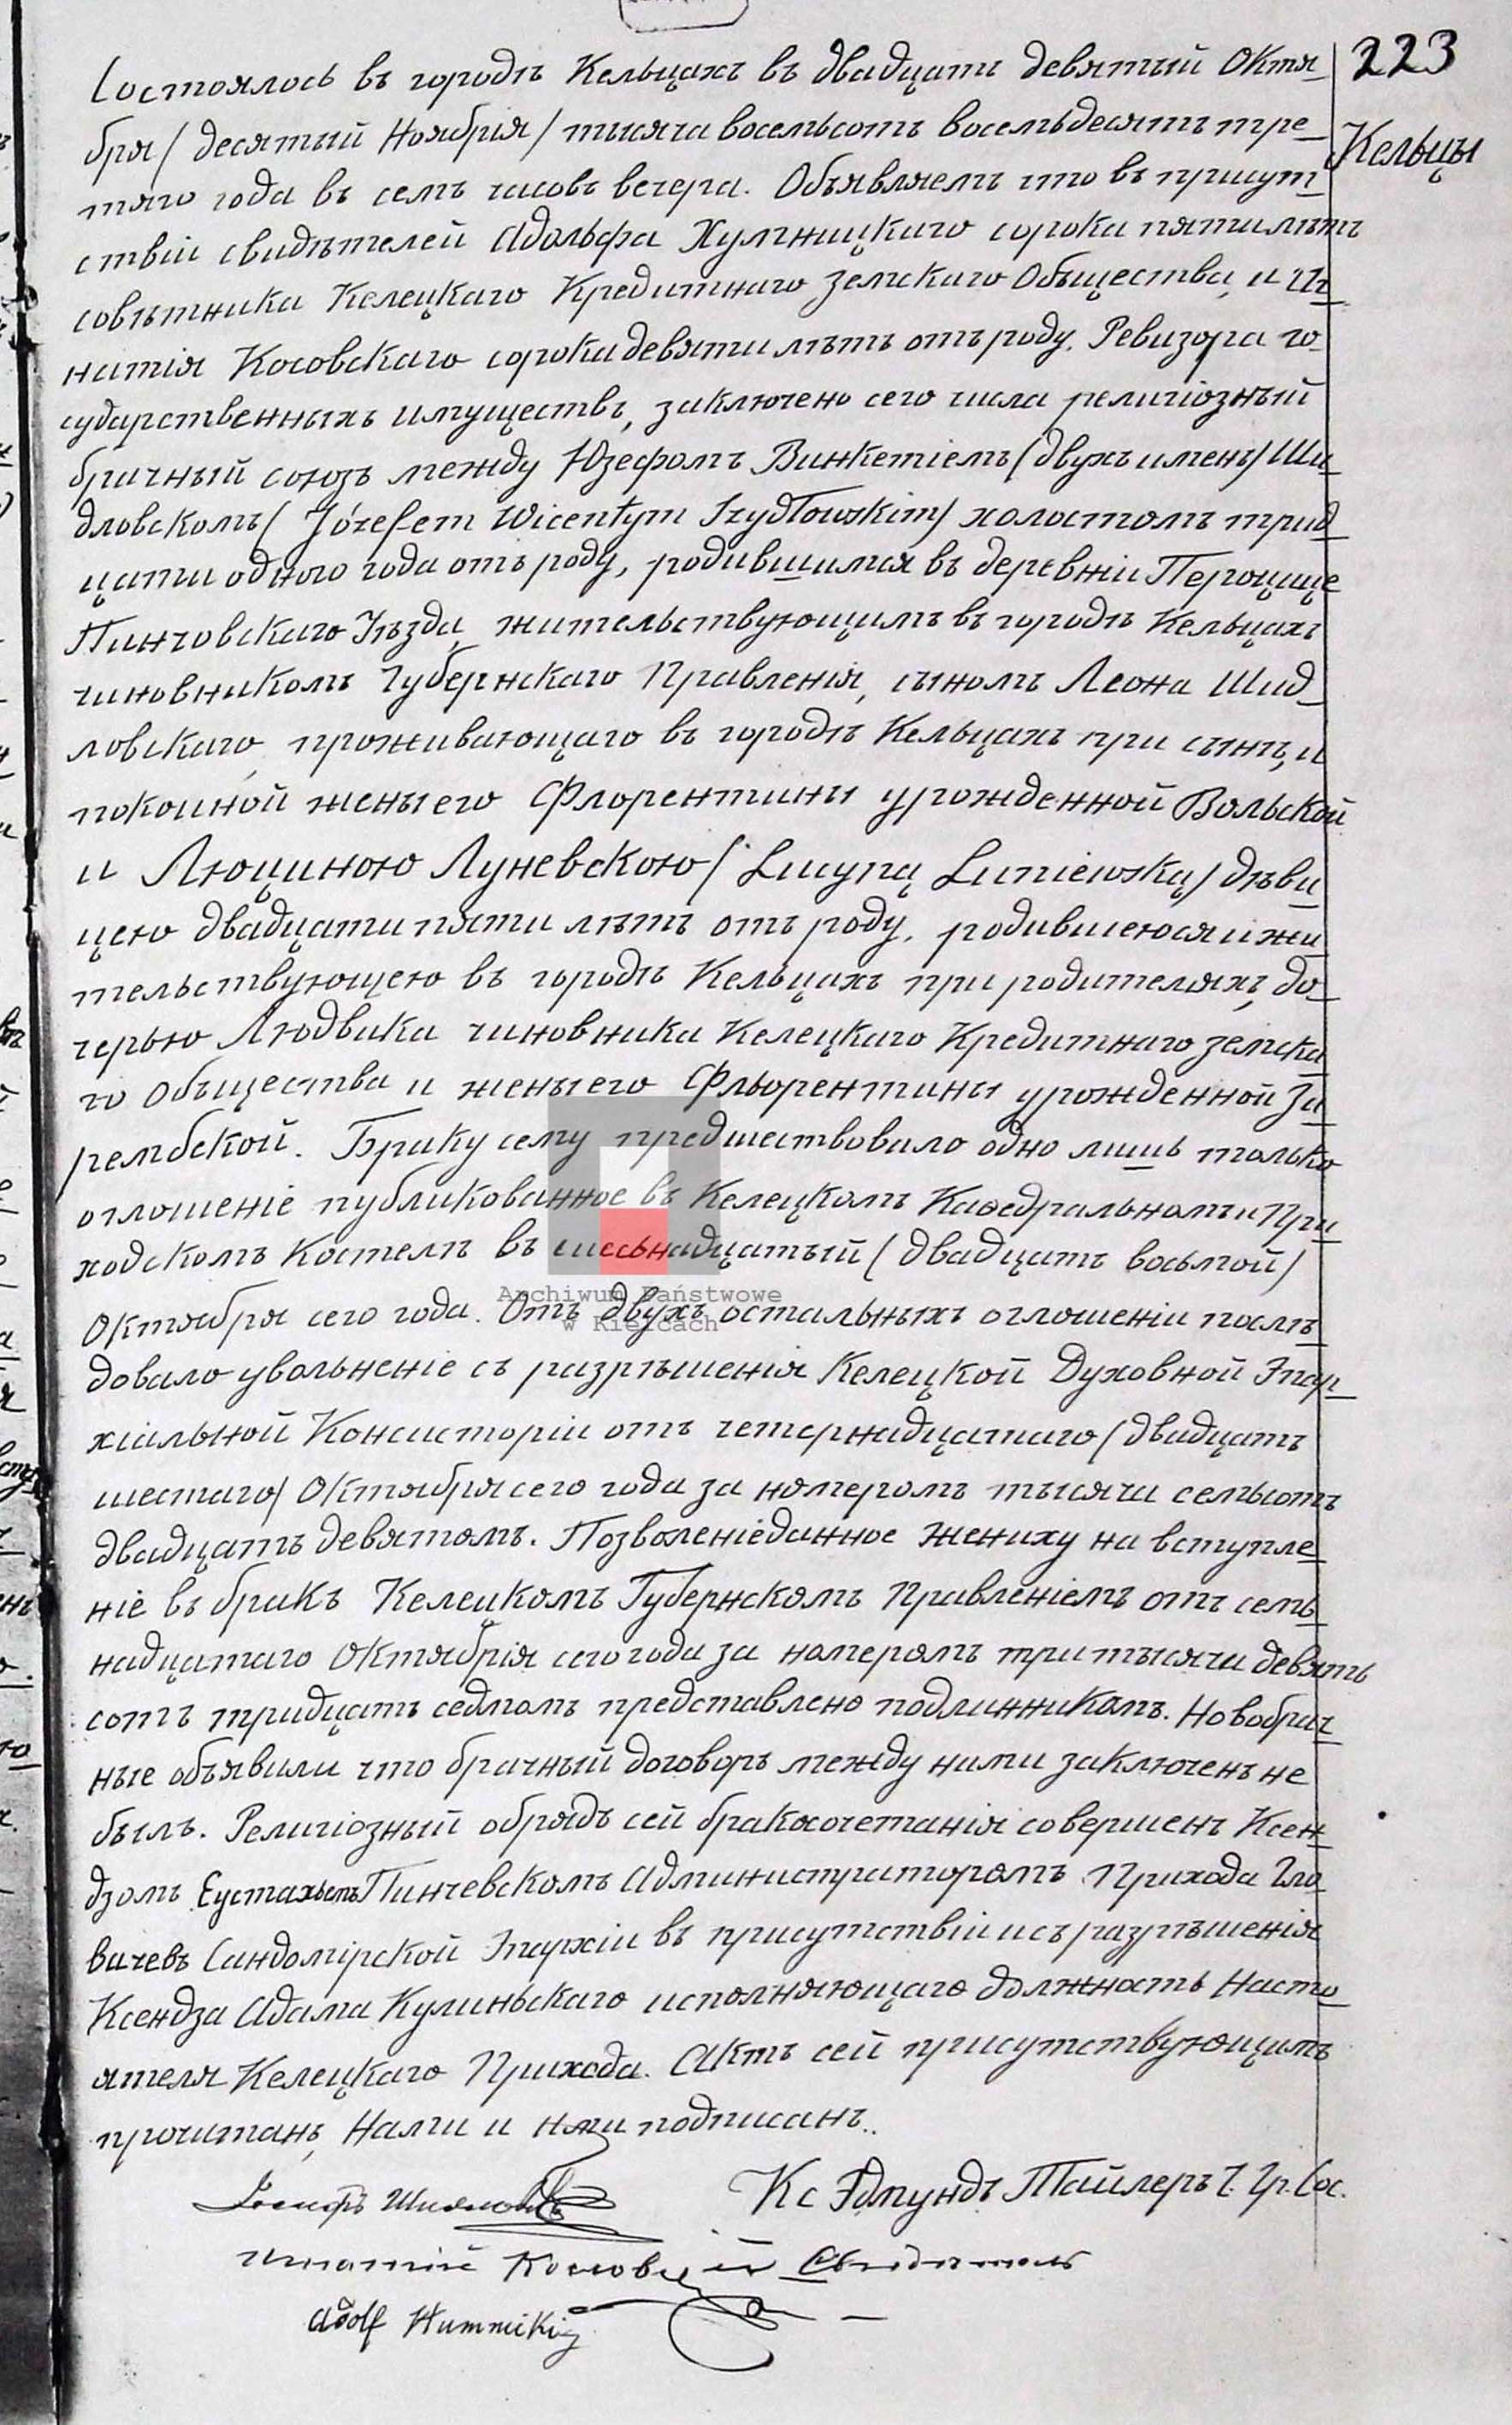 223
Кельцы
Состоялось въ городѣ Кельцахъ въ двадцать девятый Октя-
бря / десятый Ноябрія / тысяча восемьсотъ восемьдесятъ тре-
тяго года въ семъ часовъ вечера. Объявляемъ что въ присут-
ствіи свидѣтелей Адольфа Хумницкаго сорока пяти лѣтъ
совѣтника Келецкаго Кредитнаго Земскаго Общества, и Иг-
натія Косовскаго сорока девяти лѣтъ отъ роду, Ревизора го-
сударственныхъ имуществъ, заключено сего числа религіозный
брачный союзъ между Юзефомъ Винкетіемъ (двухъ именъ) Ши-
дловскомъ (Józefem Wicentym Szydłowskim) холостомъ трид-
цати одного года отъ роду, родившимся въ деревніи Пероцице
Пинчовскаго Уѣзда, жительствующимъ въ городѣ Кельцахъ
чиновникомъ Губернскаго Правленія, сыномъ Леона Шид-
ловскаго, проживающаго въ городѣ Кельцахъ при сынѣ, и
покойной жены его Флорентины урожденной Вольской
и Люциною Луневскою (Lucyną Łuniewską) дѣви-
цею двадцати пяти лѣтъ отъ роду, родившеюся и жи-
тельствующею въ городѣ Кельцахъ при родителяхъ, до-
черью Людвика чиновника Келецкаго Кредитнаго Земска-
го Общества и жены его Фльорентины урожденной За-
рембской. Браку сему предшествовало одно лишь только
оглошеніе публикованное въ Келецкомъ Каѳедральномъ и При-
ходскомъ Костелѣ въ шесьнадцатый (двадцать восьмой)
Октября сего года. Отъ двухъ остальныхъ оглошеніи послѣ-
довало увольненіе съ разрѣшенія Келецкой Духовной Эпар-
хіальной Консисторіи отъ четернадцатаго (двадцать
шестаго) Октября сего года за номеромъ тысяча семьсотъ
двадцать девятомъ. Позволеніе данное жениху на вступле-
ніе въ бракъ Келецкомъ Губернскомъ Правленіемъ отъ семь-
надцатаго Октябрія сего года за номеромъ три тысячи девять
сотъ тридцать седмомъ представлено подлинникомъ. Новобрач-
ные объявили что брачный договоръ между ними заключенъ не
былъ. Религіозный обрядъ сей бракосочетанія совершенъ Ксен-
дзомъ Еустахымъ Пинчевскомъ Администраторомъ Прихода Гло-
вачевъ Сандомірской Эпархіи въ присутствіи и съ разрѣшенія
Ксендза Адама Кулиньскаго исполняющаго должность Насто-
ятеля Келецкаго Прихода. Актъ сей присутствующимъ
прочитанъ, Нами и ими подписанъ.
Кс Эдмундъ Тайлеръ Ч. Гр. Сос.
Іосифъ Шидловскій
Игнатій Косовскій Свидѣтель
Adolf Humnicki
Archiwum Państwowe
w Kielcach